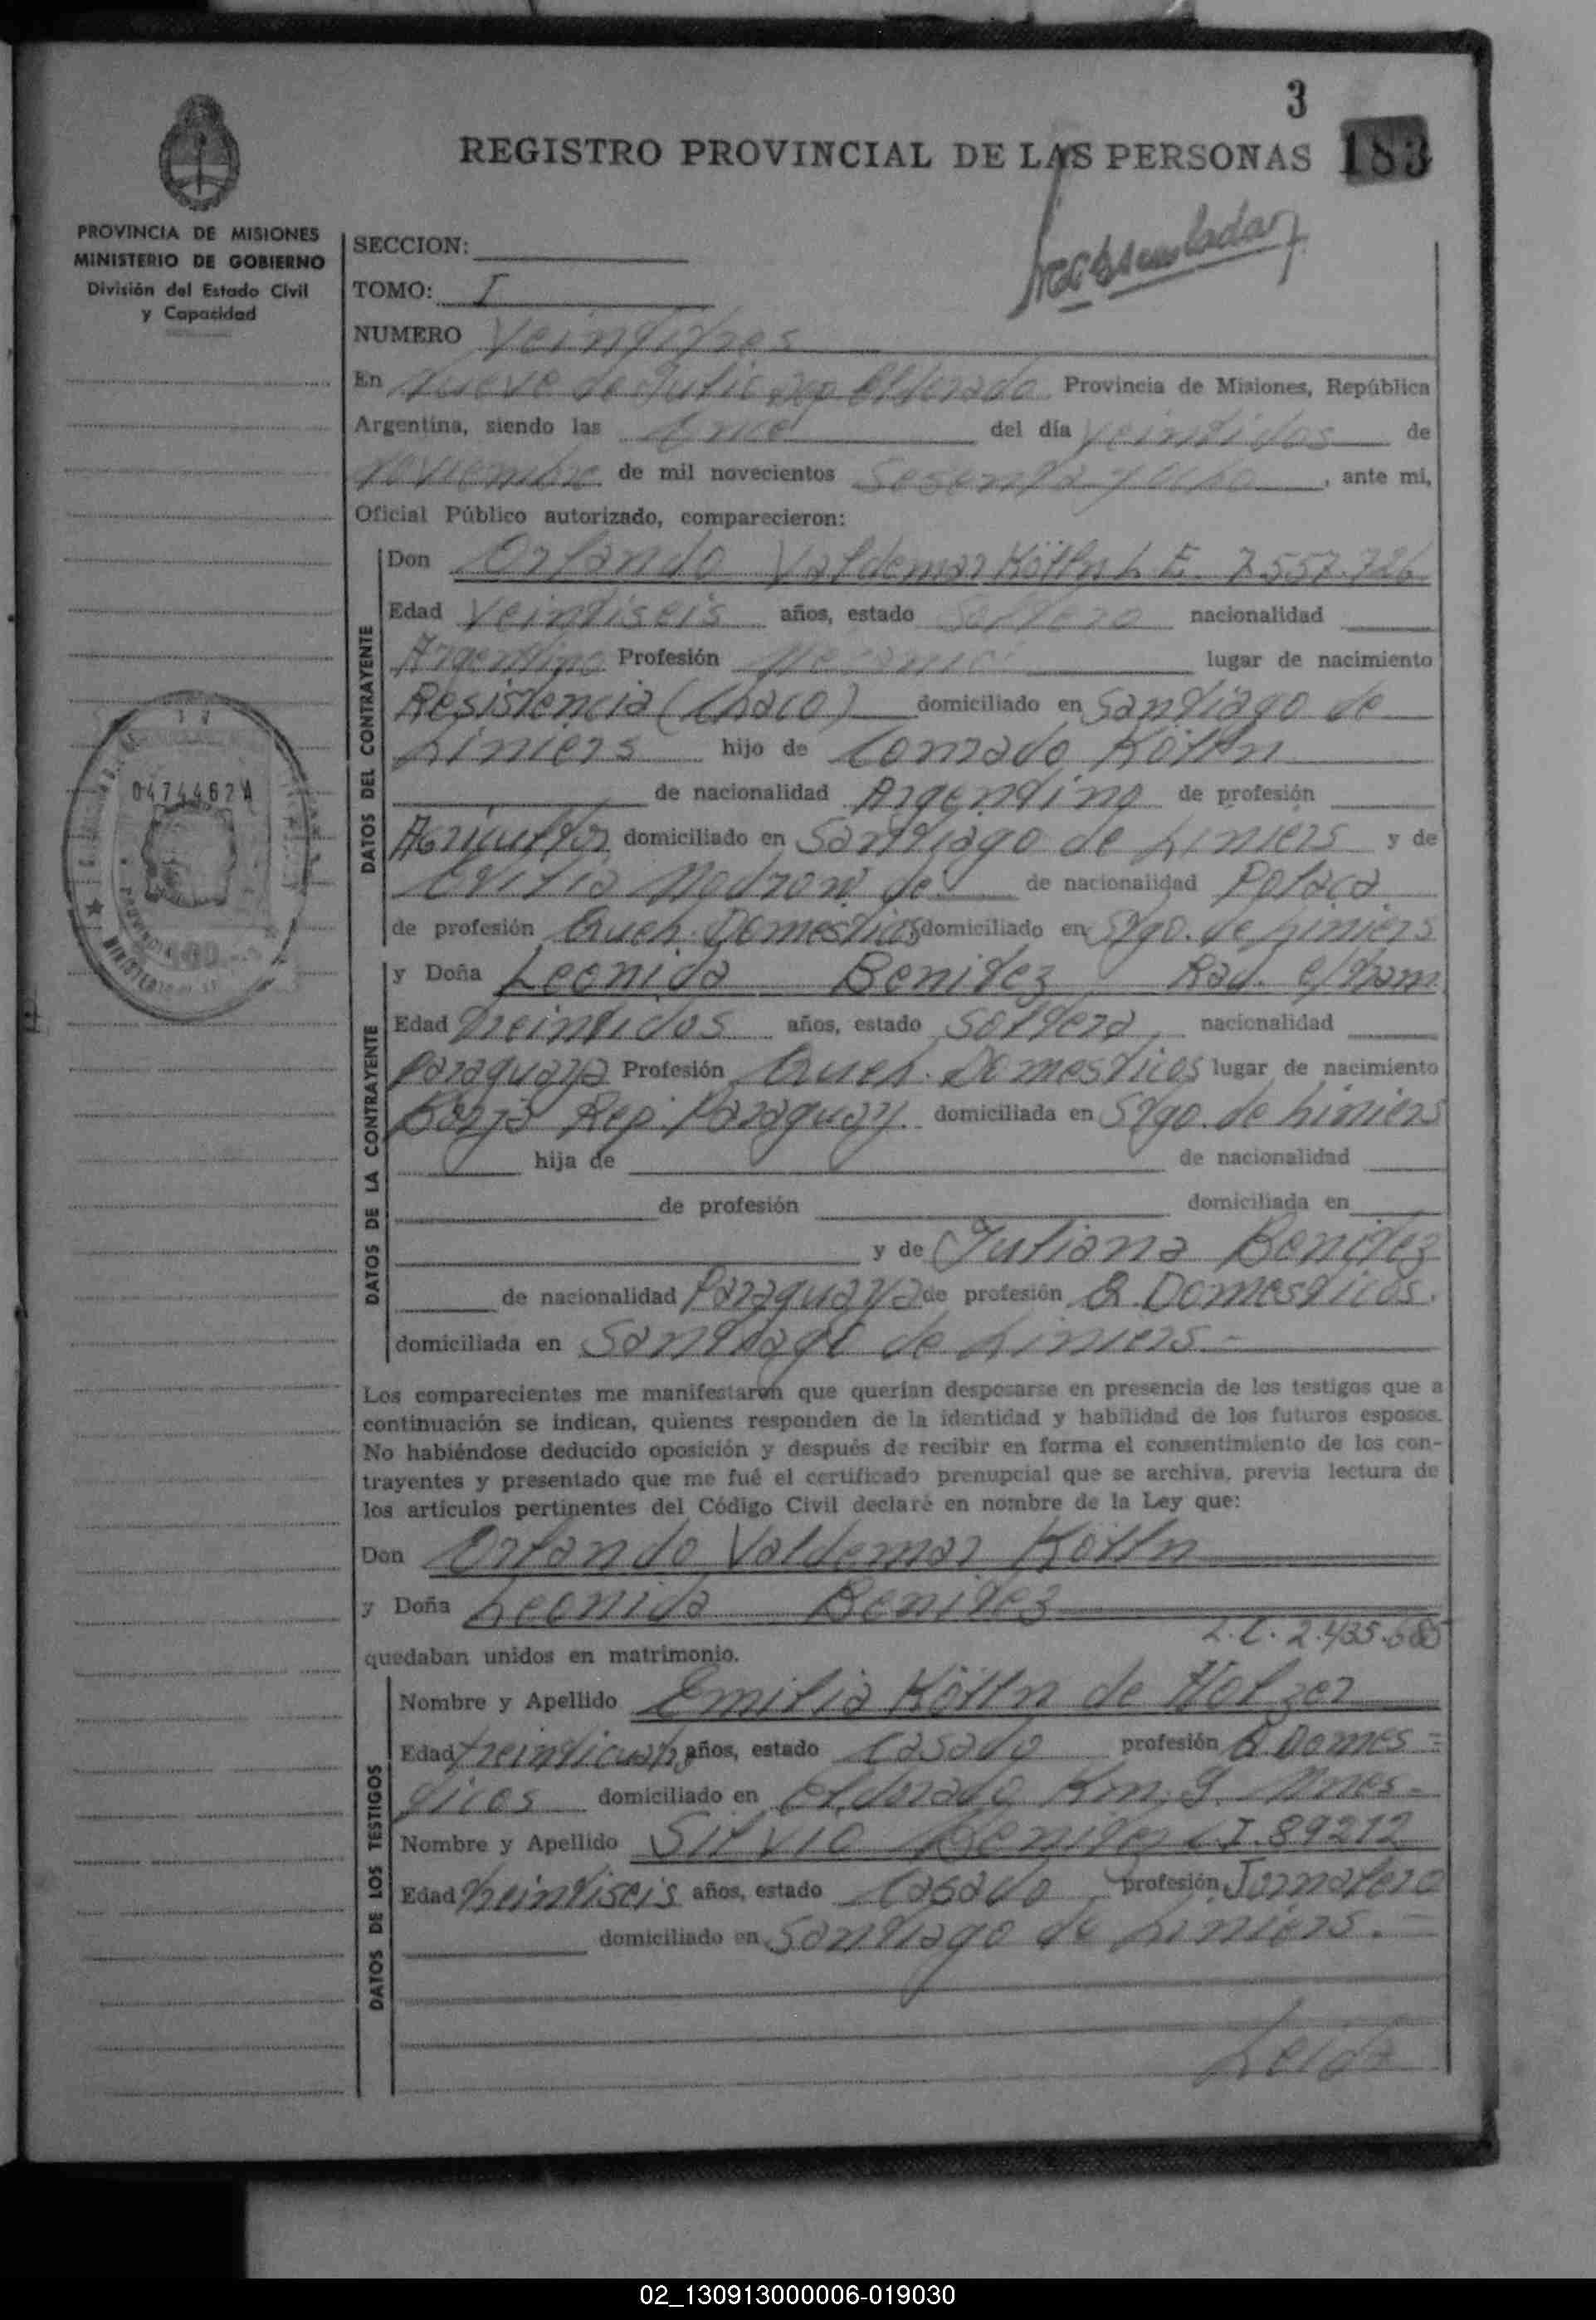 3
REGISTRO PROVINCIAL DE LAS PERSONAS 183
PROVINCIA DE MISIONES
MINISTERIO DE GOBIERNO
División del Estado Civil
y Capacidad
SECCION:
TOMO: I
NUMERO Veintitres
En Nueve de Julio Dep Eldorado Provincia de Misiones, República
Argentina, siendo las once del día veintidos de
noviembre de mil novecientos sesenta y ocho, ante mi,
Oficial Público autorizado, comparecieron:
DATOS DEL CONTRAYENTE
Don Orlando Valdemar Kölln L E 7.557.726
Edad Veintiseis años, estado Soltero nacionalidad
Argentino Profesión lugar de nacimiento
Resistencia (Chaco) domiciliado en Santiago de
Liniers hijo de Conrado Kölln
de nacionalidad Argentino de profesión
Agricultor domiciliado en Santiago de Liniers y de
de nacionalidad Polaca
de profesión Queh. Domesticos domiciliado en Stgo. de Liniers
DATOS DE LA CONTRAYENTE
y Doña Leonida Benitez Rad. e/tram
Edad treintidos años, estado Soltera nacionalidad
Paraguaya Profesión Queh. Domesticos lugar de nacimiento
Borja Rep. Paraguay. domiciliada en Stgo. de Liniers
hija de de nacionalidad
de profesión domiciliada en
y de Juliana Benitez
de nacionalidad Paraguaya de profesión Q Domesticos.
domiciliada en Santiago de Liniers.-
Los comparecientes me manifestaron que querían desposarse en presencia de los testigos que a
continuación se indican, quienes responden de la identidad y habilidad de los futuros esposos.
No habiéndose deducido oposición y después de recibir en forma el consentimiento de los con-
trayentes y presentado que me fué el certificado prenupcial que se archiva, previa lectura de
los artículos pertinentes del Código Civil declaré en nombre de la Ley que:
Don Orlando Valdemar Kölln
y Doña Leonida Benitez
L.C. 2.435.685
quedaban unidos en matrimonio.
DATOS DE LOS TESTIGOS
Nombre y Apellido Emilia Kölln de Holzer
Edad años, estado Casado profesión Q Domes=
ticos domiciliado en Eldorado Km. 9. Mnes.-
Nombre y Apellido Silvio Benitez C I. 89212
Edad treintiseis años, estado Casado profesión Jornalero
domiciliado en Santiago de Liniers.-
Leida
04744624
02_130913000006-019030